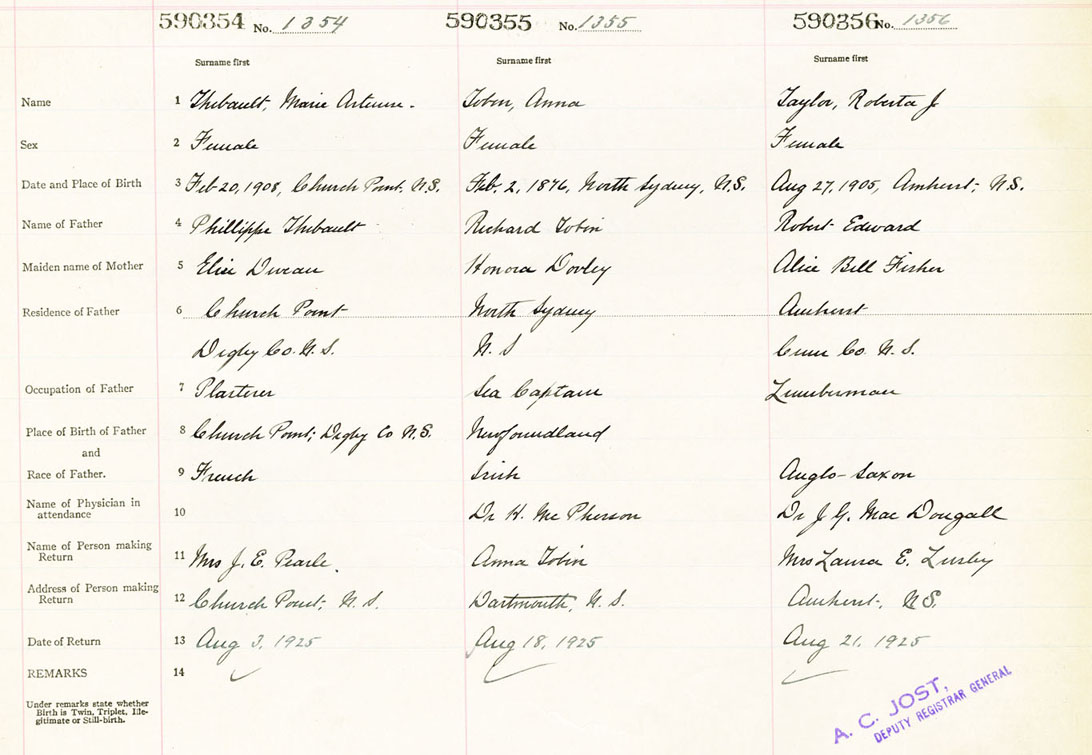 590354 No. 1354 590355 No. 1355 590356 No. 1356
Surname first Surname first Surname first
Name 1 Thibault, Marie Artemise. Tobin, Anna Taylor, Roberta J
Sex 2 Female Female Female
Date and Place of Birth 3 Feb 20, 1908, Church Point. N.S. Feb. 2, 1876, North Sydney, N.S. Aug 27, 1905, Amherst, N.S.
Name of Father 4 Phillippe Thibault Richard Tobin Robert Edward
Maiden name of Mother 5 Elise Duveau Honora Dooley Alice Bell Fisher
Residence of Father 6 Church Point North Sydney Amherst
Digby Co. N.S. N.S Cum Co. N.S.
Occupation of Father 7 Plasterer Sea Captain Lumberman
Place of Birth of Father 8 Church Point, Digby Co N.S. Newfoundland
and
Race of Father. 9 French Irish Anglo-Saxon
Name of Physician in
attendance 10 Dr H. Mc Pherson Dr J. G. Mac Dougall
Name of Person making
Return 11 Mrs J. E. Anna Tobin Mrs Laura E. Lusby
Address of Person making
Return 12 Church Point, N.S. Dartmouth, N.S. Amherst, N.S.
Date of Return 13 Aug 3, 1925 Aug 18, 1925 Aug 21, 1925
REMARKS 14
Under remarks state whether
Birth is Twin, Triplet, Ille-
gitimate or Still-birth.
A. C. JOST,
DEPUTY REGISTRAR GENERAL